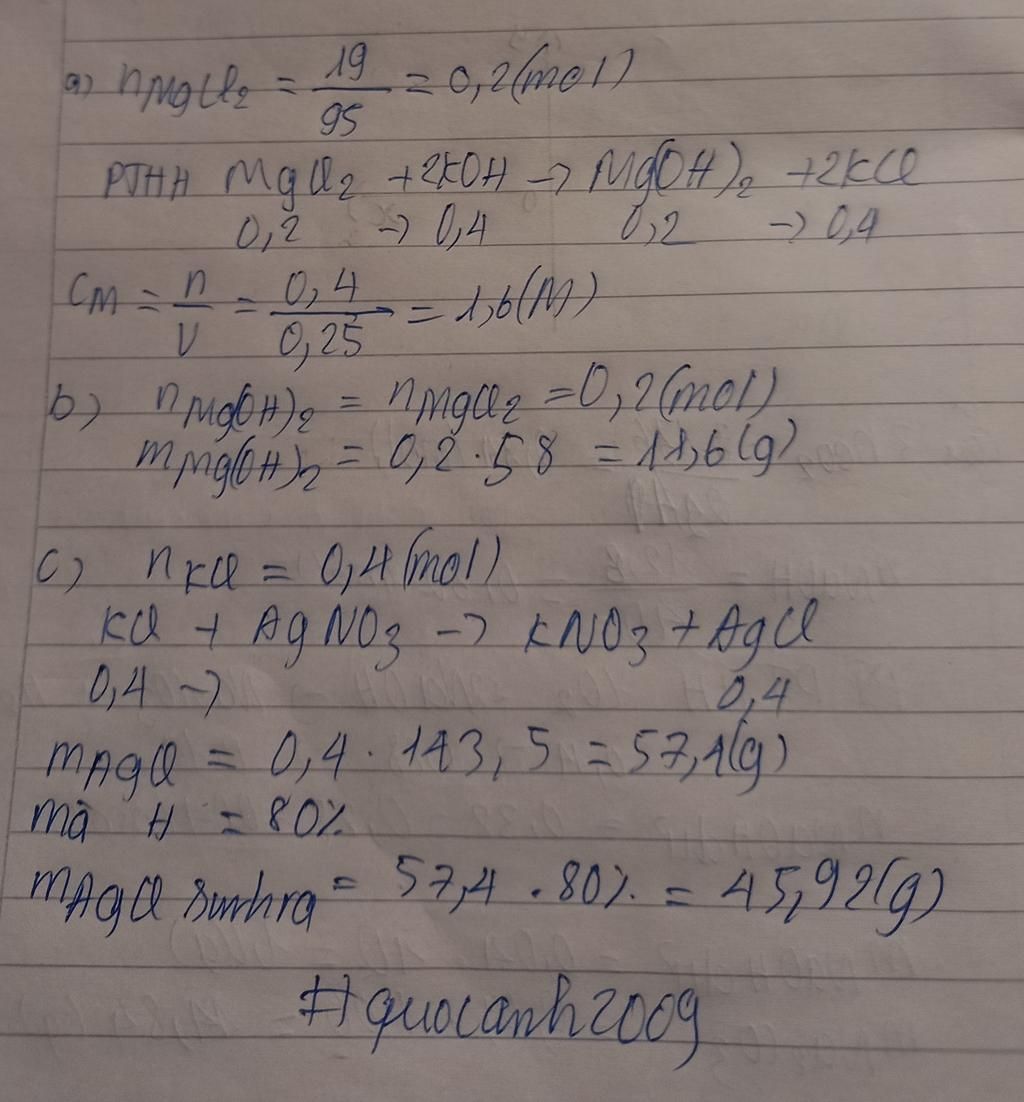 a) nMgCl2 = 19/95 = 0,2(mol)
PTHH MgCl2 + 2KOH → Mg(OH)2 + 2KCl
0,2 → 0,4 0,2 → 0,4
CM = n/V = 0,4/0,25 = 1,6(M)
b) nMg(OH)2 = nMgCl2 = 0,2(mol)
mMg(OH)2 = 0,2 . 58 = 11,6(g)
c) nKCl = 0,4(mol)
KCl + AgNO3 → KNO3 + AgCl
0,4 → 0,4
mAgCl = 0,4 . 143,5 = 57,4(g)
mà H = 80%
mAgCl sinh ra = 57,4 . 80% = 45,92(g)
#quocanh2009